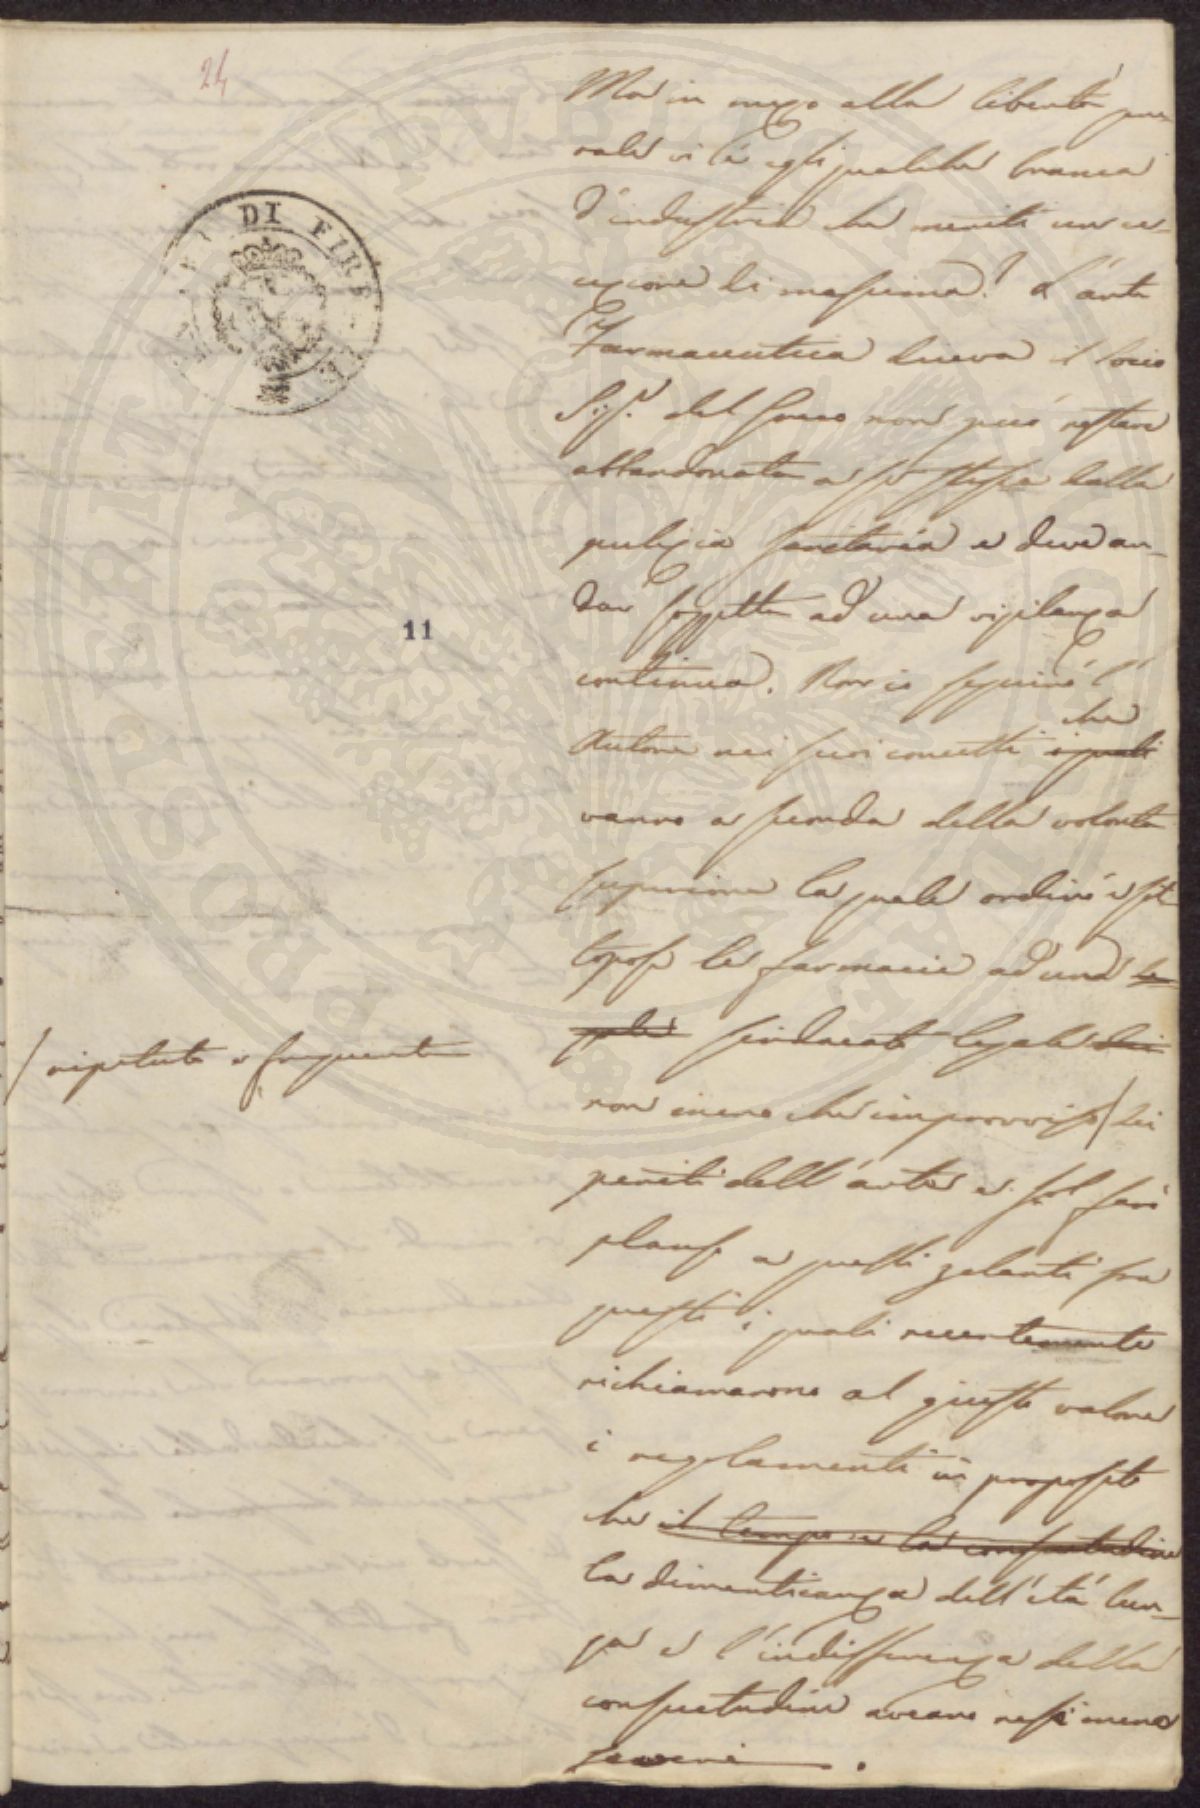 24
DI FIRE
11
Ma in mezzo alla libertà gene
rale vi è egli qualche branca
d'industria che meriti un ec-
cezione di massima? L'arte
Farmaceutica diceva il socio
Sig.r del Greco non può restare
abbandonata a se stessa dalla
pulizia sanitaria e deve an-
dar soggetta ad una vigilanza
continua. Non io seguirò l'
Autore nei suoi concetti i quali che
vanno a seconda della volontà
superiore la quale ordinò e sot
topose le farmacie ad una
sindacato legale dei
non meno che improvviso / dei
/ ripetuto e frequente
periti dell'arte e sol farò
plauso a questi zelanti fra
questi i quali recentemente
richiamarono al giusto valore
i regolamenti in proposito
che il tempo e la consuetudine
la dimenticanza dell'età lun-
ga e l'indifferenza della
consuetudine aveano resi meno
severi.